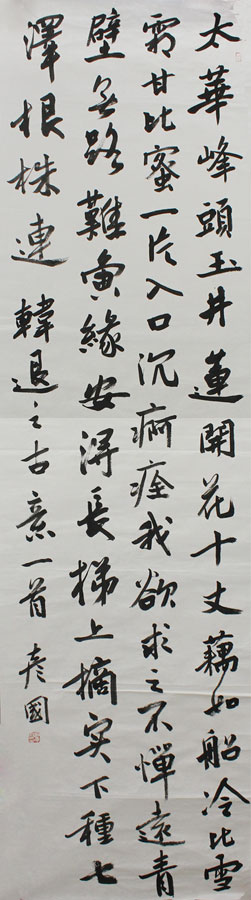 太華峰頭玉井蓮開花十丈藕如船冷比雪
霜甘比蜜一片入口沉痾痊我欲求之不憚遠青
壁無路難夤緣安得長梯上摘实下種七
澤根株連 韓退之古意一首 彦國